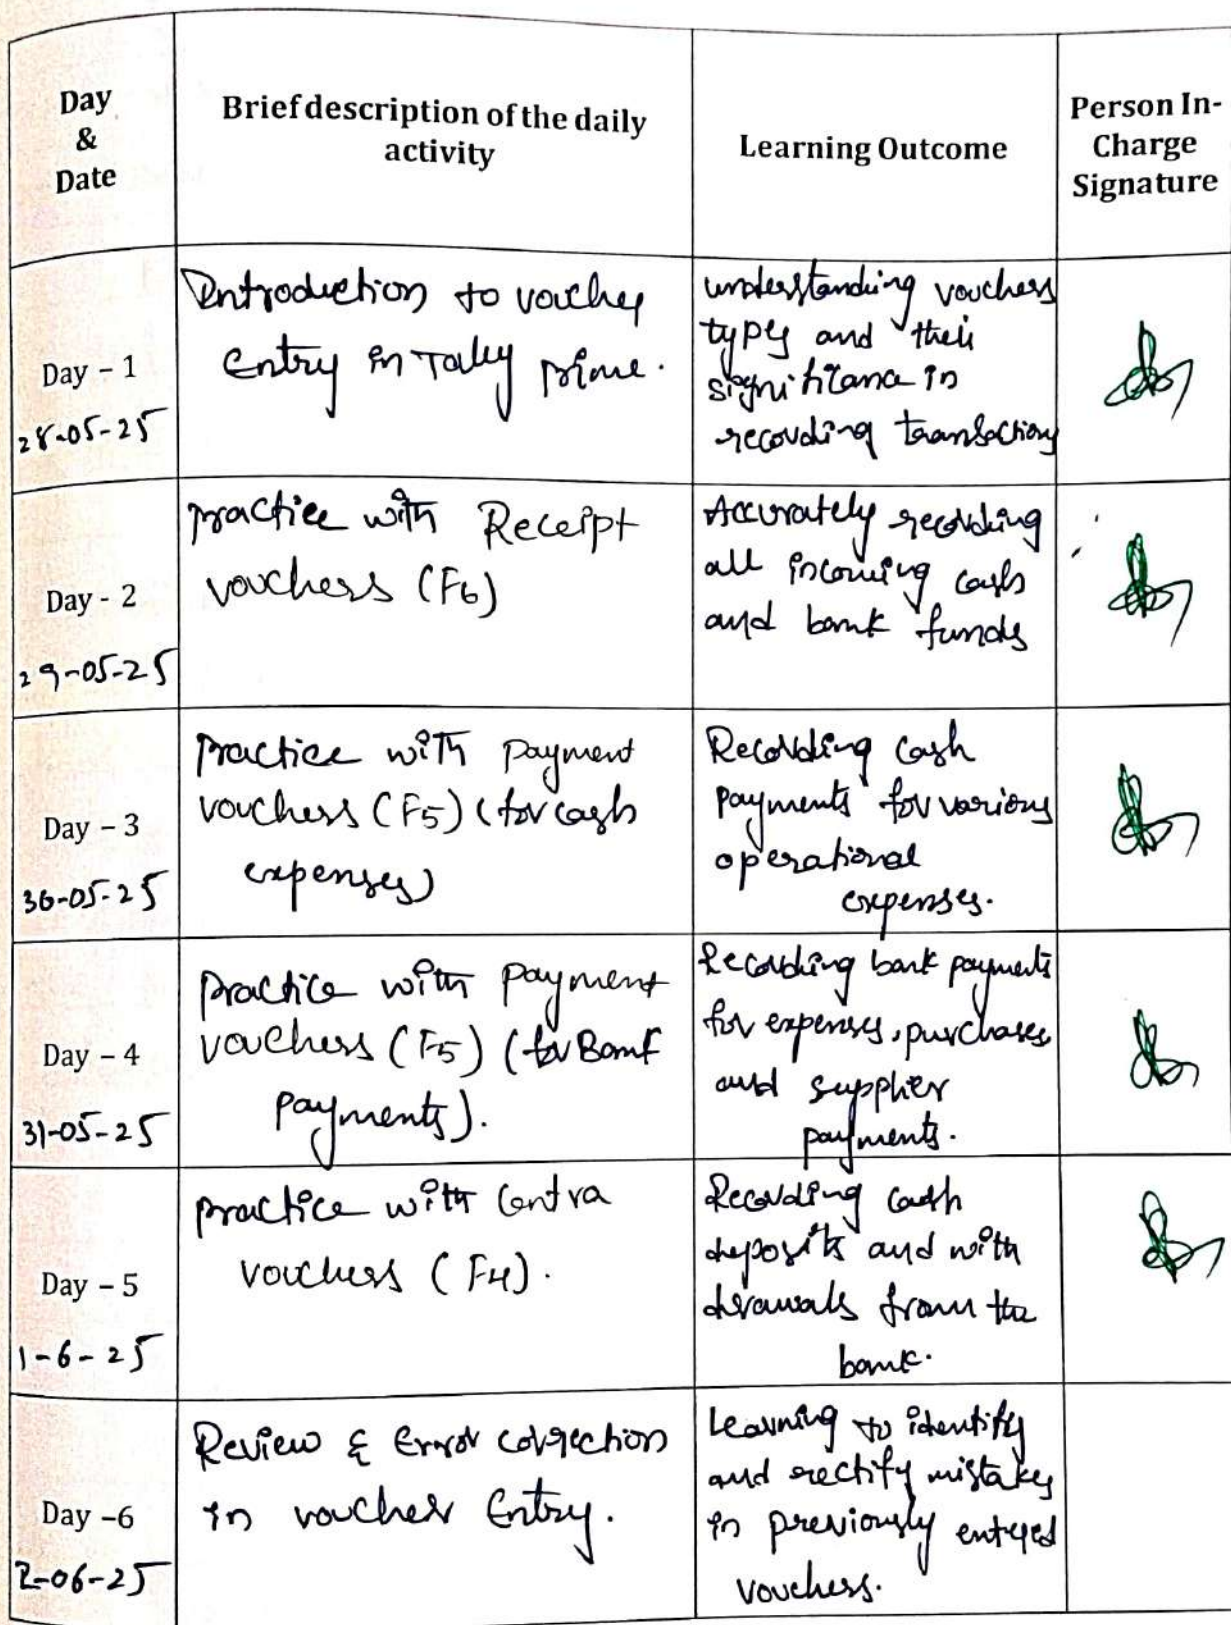 Day
&
Date
Brief description of the daily
activity
Learning Outcome
Person In-
Charge
Signature
Day – 1
28-05-25
Introduction to voucher
Entry in Tally prime.
understanding vouchers
types and their
significance in
recording transactions
Day - 2
29-05-25
practice with Receipt
vouchers (F6)
Accurately recording
all incoming cash
and bank funds
Day – 3
30-05-25
practice with payment
vouchers (F5) (for cash
expenses)
Recording cash
payments for various
operational
expenses.
Day – 4
31-05-25
practice with payment
vouchers (F5) (for Bank
payments).
Recording bank payments
for expenses, purchases
and supplier
payments.
Day – 5
1-6-25
practice with Contra
vouchers (F4).
Recording cash
deposits and with
drawals from the
bank.
Day –6
2-06-25
Review & Error correction
in voucher Entry.
Learning to identify
and rectify mistakes
in previously entered
vouchers.